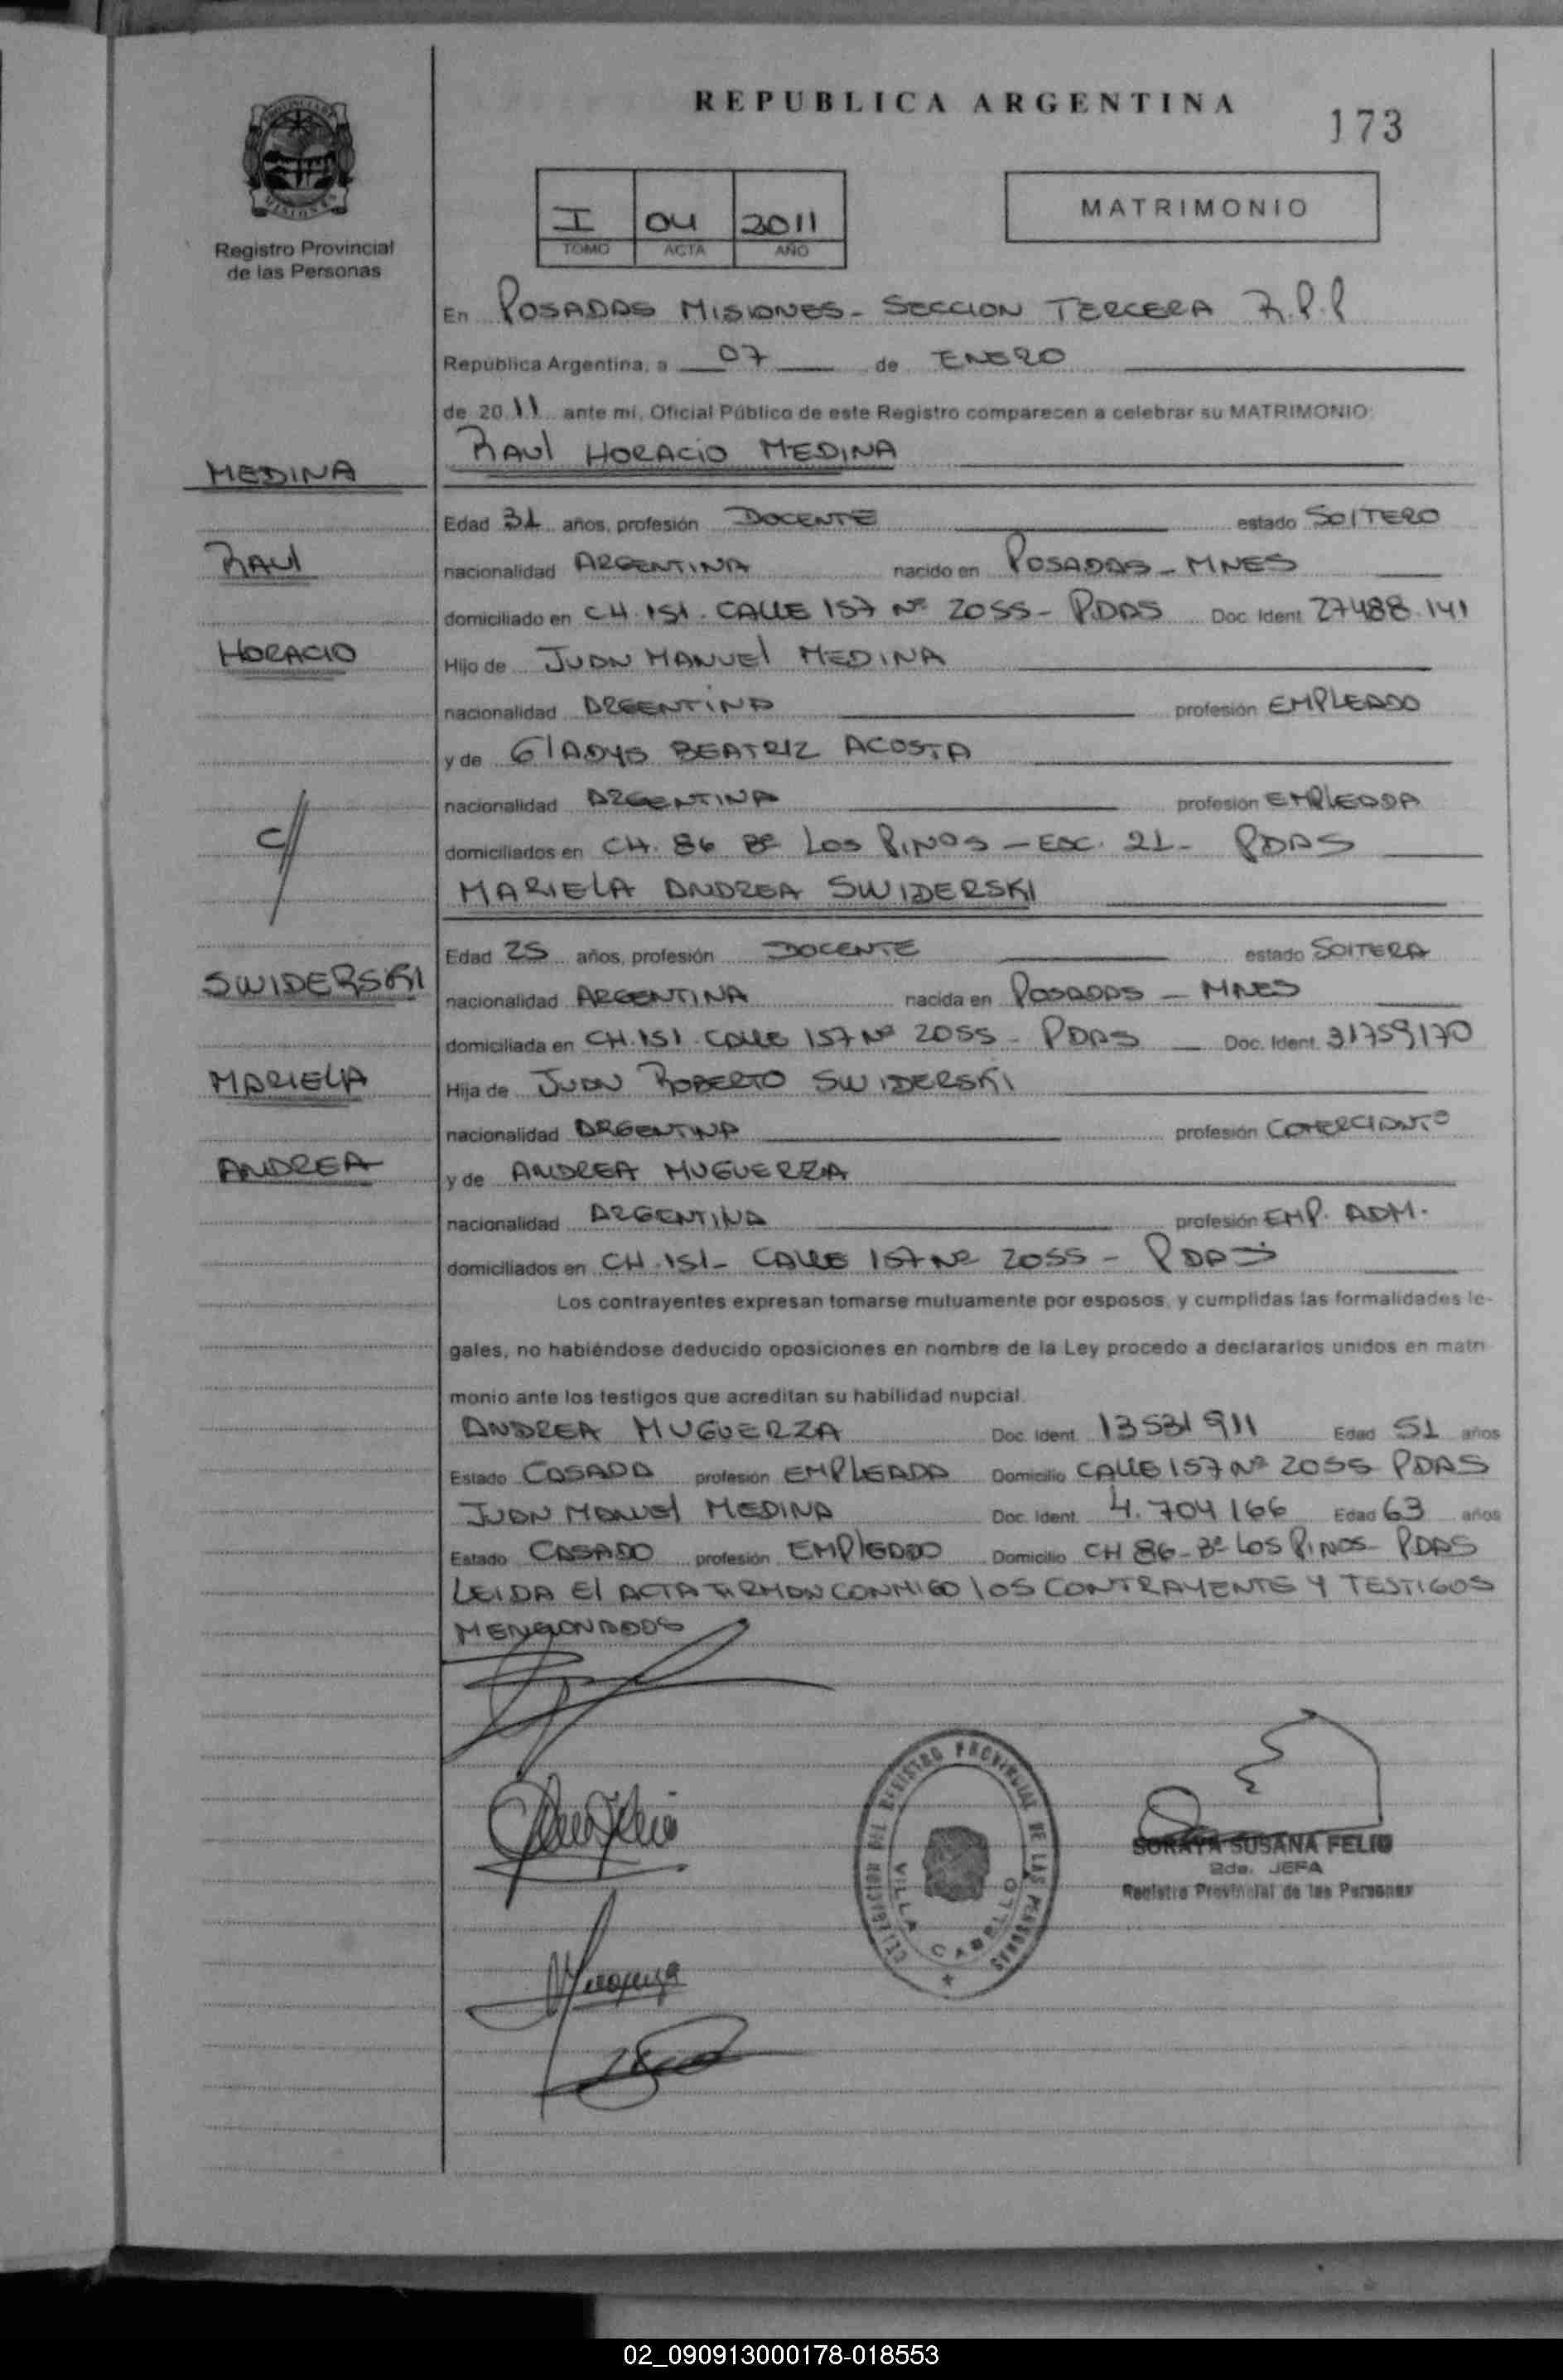 REPUBLICA ARGENTINA
173
Registro Provincial
de las Personas
I 04 2011
TOMO ACTA AÑO
MATRIMONIO
En POSADAS MISIONES - SECCION TERCERA R.P.P
República Argentina, a 07 de ENERO
de 2011 ante mí, Oficial Público de este Registro comparecen a celebrar su MATRIMONIO:
RAUL HORACIO MEDINA
MEDINA
Edad 31 años, profesión DOCENTE estado SOLTERO
RAUL
nacionalidad ARGENTINA nacido en POSADAS - MNES
domiciliado en CH. 151. CALLE 157 Nº 2055 - PDAS Doc. Ident. 27488.141
HORACIO
Hijo de JUAN MANUEL MEDINA
nacionalidad ARGENTINA profesión EMPLEADO
y de GLADYS BEATRIZ ACOSTA
nacionalidad ARGENTINA profesión EMPLEADA
C/
domiciliados en CH. 86 Bº LOS PINOS - ESC. 21 - PDAS
MARIELA ANDREA SWIDERSKI
Edad 25 años, profesión DOCENTE estado SOLTERA
SWIDERSKI
nacionalidad ARGENTINA nacida en POSADAS - MNES
domiciliada en CH. 151. CALLE 157 Nº 2055 - PDAS Doc. Ident. 31759170
MARIELA
Hija de JUAN ROBERTO SWIDERSKI
nacionalidad ARGENTINA profesión COMERCIANTE
ANDREA
y de ANDREA MUGUERZA
nacionalidad ARGENTINA profesión EMP. ADM.
domiciliados en CH. 151 - CALLE 157 Nº 2055 - PDAS
Los contrayentes expresan tomarse mutuamente por esposos, y cumplidas las formalidades le-
gales, no habiéndose deducido oposiciones en nombre de la Ley procedo a declararlos unidos en matri
monio ante los testigos que acreditan su habilidad nupcial.
ANDREA MUGUERZA Doc. Ident. 13531911 Edad 51 años
Estado CASADA profesión EMPLEADA Domicilio CALLE 157 Nº 2055 PDAS
JUAN MANUEL MEDINA Doc. Ident. 4.704166 Edad 63 años
Estado CASADO profesión EMPLEADO Domicilio CH 86 - Bº LOS PINOS - PDAS
LEIDA EL ACTA FIRMAN CONMIGO LOS CONTRAYENTES Y TESTIGOS
MENCIONADOS
DEL REGISTRO PROVINCIAL DE LAS PERSONAS
VILLA CABELLO
SORAYA SUSANA FELIU
2da. JEFA
Registro Provincial de las Personas
02_090913000178-018553